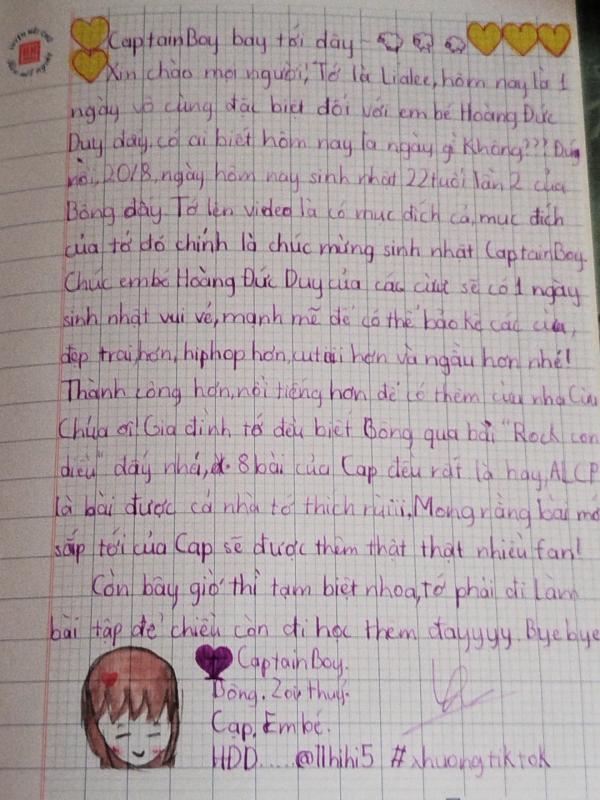 CaptainBoy bay tới đây
Xin chào mọi người, Tớ là Lialee, hôm nay là 1
ngày vô cùng đặc biệt đối với em bé Hoàng Đức
Duy đây, có ai biết hôm nay là ngày gì không??? Đúng
rồi, 20/8, ngày hôm nay sinh nhật 22 tuổi lần 2 của
Bông đây. Tớ lên video là có mục đích cả, mục đích
của tớ đó chính là chúc mừng sinh nhật CaptainBoy.
Chúc em bé Hoàng Đức Duy của các cừu sẽ có 1 ngày
sinh nhật vui vẻ, mạnh mẽ để có thể bảo kê các cừu,
đẹp trai hơn, hiphop hơn, cutiii hơn và ngầu hơn nhé!
Thành công hơn, nổi tiếng hơn để có thêm cừu nha Cừu
Chúa ơi! Gia đình tớ đều biết Bông qua bài "Rock con
diều" đấy nhá, 8 bài của Cap đều rất là hay, ALCP
là bài được cả nhà tớ thích rùiii, Mong rằng bài mới
sắp tới của Cap sẽ được thêm thật thật nhiều fan!
Còn bây giờ thì tạm biệt nhoa, tớ phải đi làm
bài tập để chiều còn đi học thêm đayyyy. Bye bye
CaptainBoy.
Bông.
Cap, Em bé.
HDD.....@11hihi5 #xhuongtiktok